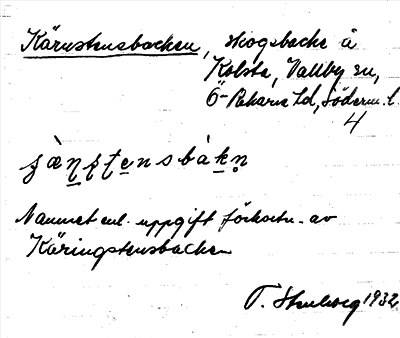 Kärnstensbacken, skogsbacke å
Kolsta, Vallby sn,
Ö-Rekarne hd, Söderm. l.
4
Namnet enl. uppgift förkortn. av
Käringstensbacken
T. Stenberg 1932